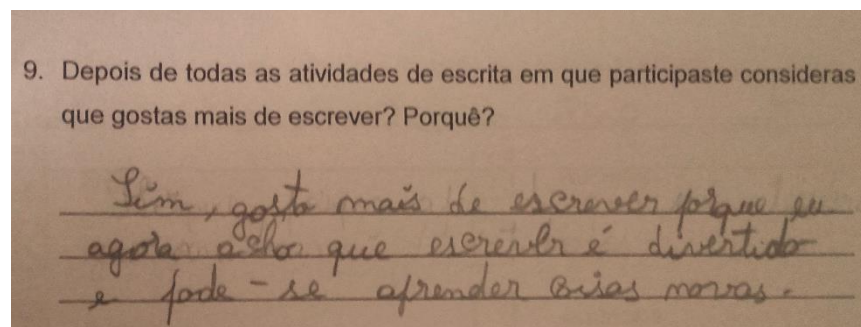 9. Depois de todas as atividades de escrita em que participaste consideras
que gostas mais de escrever? Porquê?
Sim, gosto mais de escrever porque eu
agora acho que escrever é divertido
e pode-se aprender coisas novas.